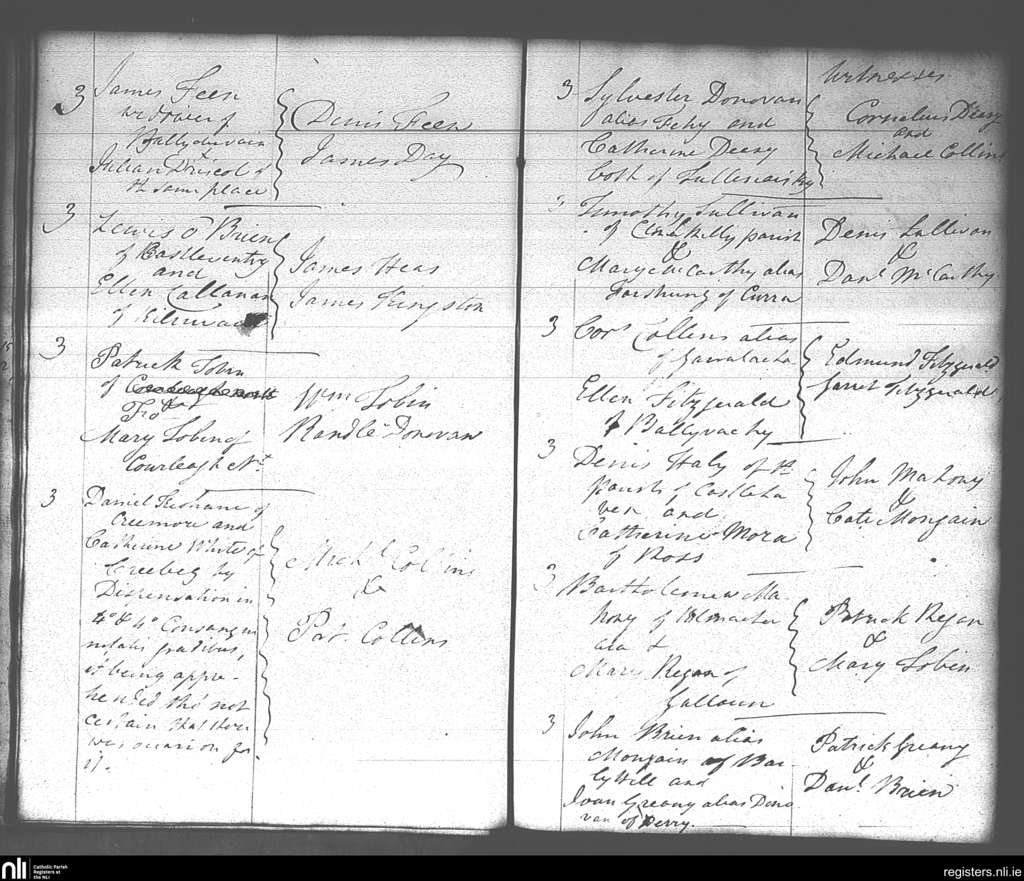 3 James Feen
we Draver of
Ballydevain
&
Julian Driscol of
the same place
Denis Feen
James Day
3 Lewis O Brien
of Castleventry
and
Ellen Callanan
of
James Heas
James Kingston
3 Patrick Tobin
of
for
Mary Tobin of
Courleagh Nt
Wm Tobin
Randle Donovan
3 Daniel Keohane of
Creemore and
Catherine White of
Creebeg by
Dispensation in
4o & 4o Consang in
notatis gradibus,
it being appre-
hended tho' not
certain that there
was occasion for
it.
Michl Collins
&
Pat Collins
Witnesses
3 Sylvester Donovan
alias Fehy and
Catherine Deesy
both of
Cornelius Deesy
and
Michael Collins
3 Timothy Sullivan
of Clonakilty parish
&
Mary McCarthy alias
of Curra
Denis Sullivan
&
Danl McCarthy
3 Cors Collins alias
of
Ellen Fitzgerald
of Ballyvachy
Edmund Fitzgerald
Garret Fitzgerald
3 Denis Haly of the
parish of Castleha
ven and
Catherine Mora
of Ross
John Mahony
&
Cate Mongain
3 Bartholomew Ma-
hony of Kilmacha
&
Mary Regan of
Galloun
Patrick Regan
&
Mary Tobin
3 John Brien alias
Mongain of Bar-
and
Joan Greany alias Dono
van of Derry.
Patrick Greany
&
Danl Brien
nli Catholic Parish
Registers at
the NLI
registers.nli.ie